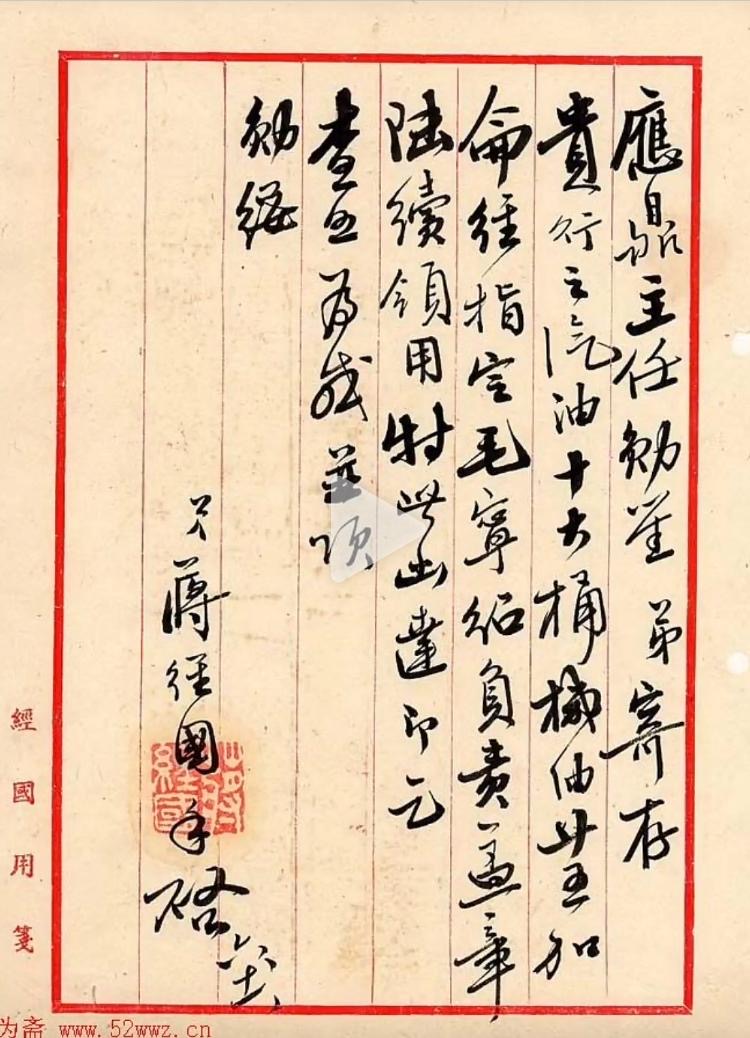 應鼎主任勛鑒弟寄存
貴行之汽油十大桶機油廿五加
侖經指定毛寧紹負責蓋章
陸續領用特此函達即乞
查照為感並頌
勛綏
弟蔣經國手啓
經國用箋
为斋 www.52wwz.cn